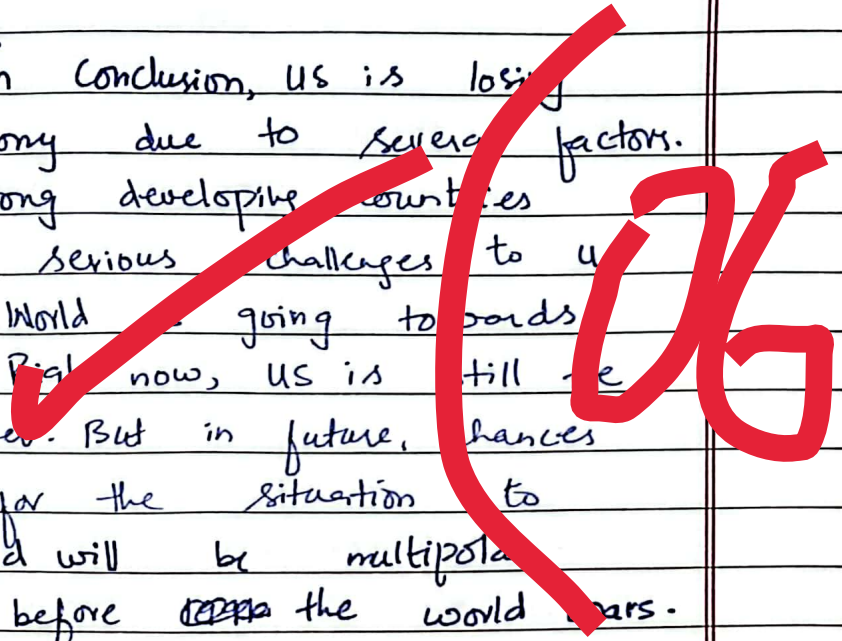 Conclusion, US is losing
due to several factors.
developing countries
serious challenges to
World going towards
Right now, US is still
But in future, chances
for the situation to
will be multipola
before the world wars.
06